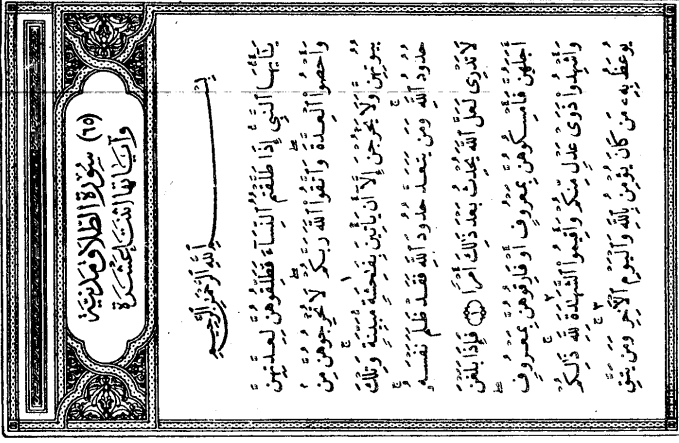 (٦٥) سُورَةُ الطَّلَاقِ مَدَنِيَّة
وَآيَاتُهَا اثْنَتَا عَشَرَة
بِسْمِ ٱللَّهِ ٱلرَّحْمَٰنِ ٱلرَّحِيمِ
يَٰٓأَيُّهَا ٱلنَّبِيُّ إِذَا طَلَّقْتُمُ ٱلنِّسَآءَ فَطَلِّقُوهُنَّ لِعِدَّتِهِنَّ
وَأَحْصُوا۟ ٱلْعِدَّةَ ۖ وَٱتَّقُوا۟ ٱللَّهَ رَبَّكُمْ ۖ لَا تُخْرِجُوهُنَّ مِنۢ
بُيُوتِهِنَّ وَلَا يَخْرُجْنَ إِلَّآ أَن يَأْتِينَ بِفَٰحِشَةٍ مُّبَيِّنَةٍ ۚ وَتِلْكَ
حُدُودُ ٱللَّهِ ۚ وَمَن يَتَعَدَّ حُدُودَ ٱللَّهِ فَقَدْ ظَلَمَ نَفْسَهُۥ ۚ
لَا تَدْرِى لَعَلَّ ٱللَّهَ يُحْدِثُ بَعْدَ ذَٰلِكَ أَمْرًا ١ فَإِذَا بَلَغْنَ
أَجَلَهُنَّ فَأَمْسِكُوهُنَّ بِمَعْرُوفٍ أَوْ فَارِقُوهُنَّ بِمَعْرُوفٍ
وَأَشْهِدُوا۟ ذَوَىْ عَدْلٍ مِّنكُمْ وَأَقِيمُوا۟ ٱلشَّهَٰدَةَ لِلَّهِ ۚ ذَٰلِكُمْ
يُوعَظُ بِهِۦ مَن كَانَ يُؤْمِنُ بِٱللَّهِ وَٱلْيَوْمِ ٱلْءَاخِرِ ۚ وَمَن يَتَّقِ